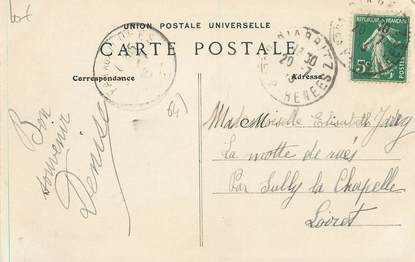 UNION POSTALE UNIVERSELLE
CARTE POSTALE
Correspondance
Adresse
RÉPUBLIQUE FRANÇAISE
5c
POSTES
13 30
20 -7
Bon
souvenir
Denise
Mademoiselle Elisabeth
La motte de
Par Sully la Chapelle
Loiret